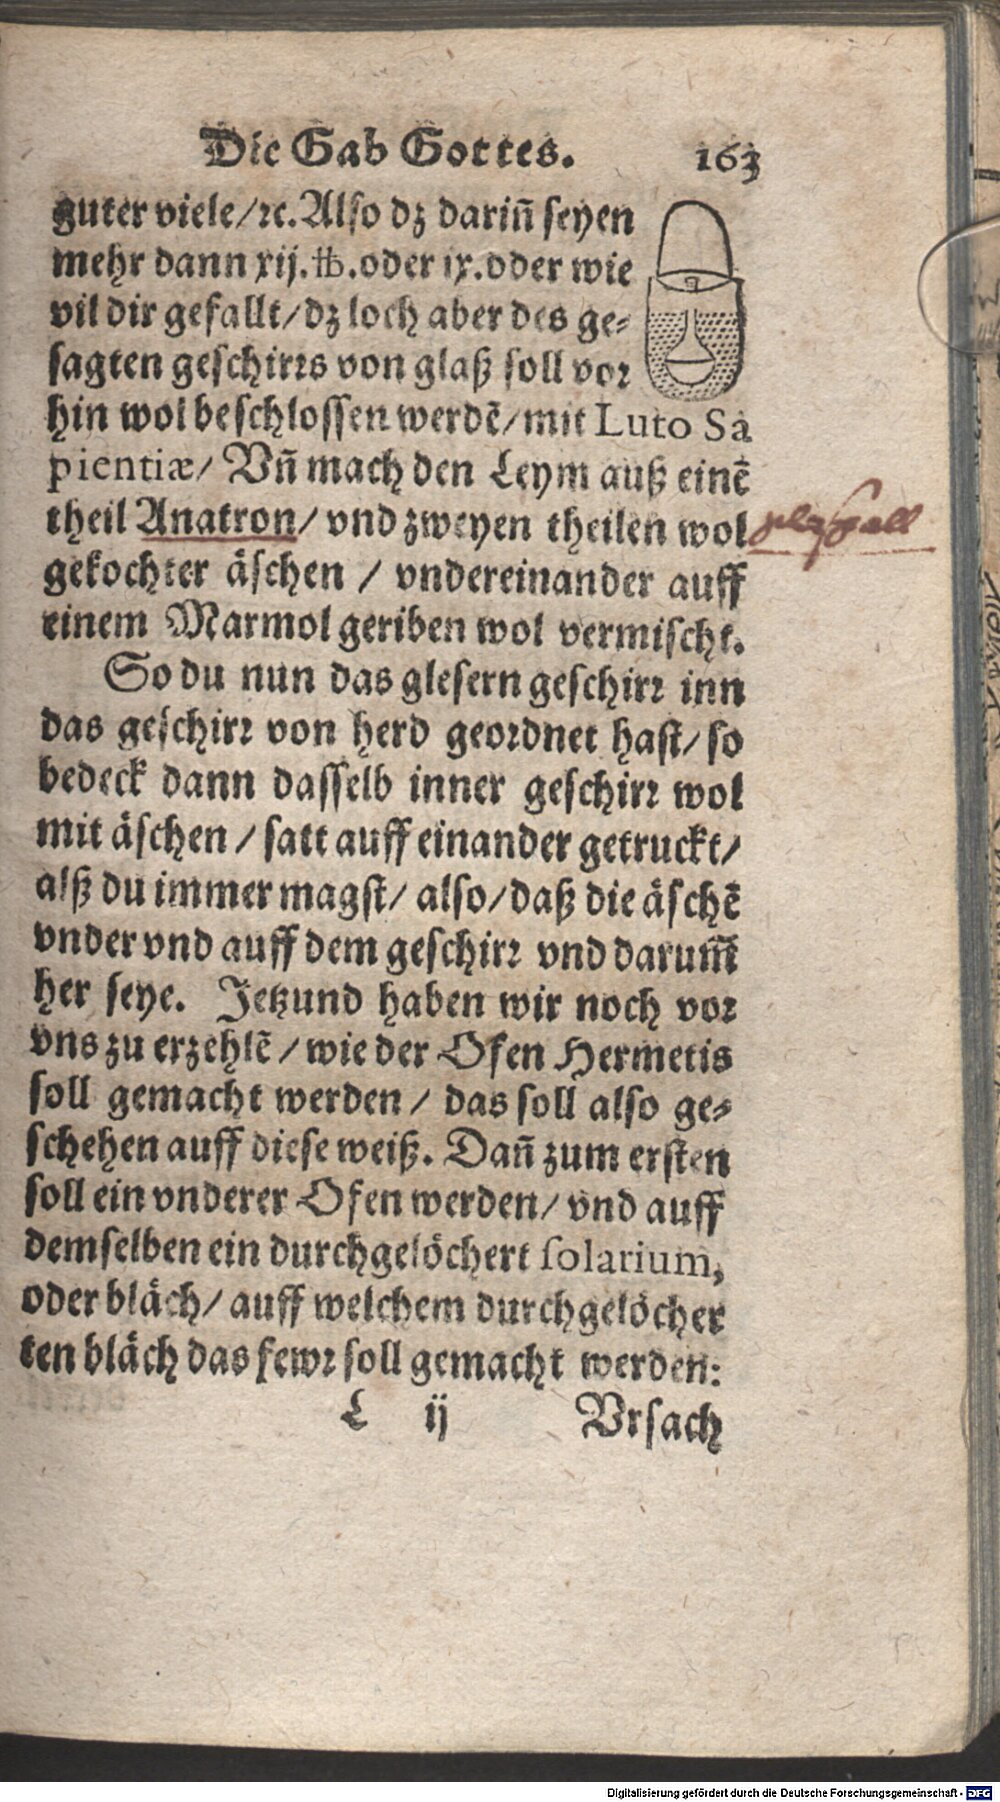 Die Gab Gottes. 163
guter viele/ꝛc. Also dz dariñ seyen
mehr dann xij. ℔. oder ix. oder wie
vil dir gefallt/dz loch aber des ge⸗
sagten geschirꝛs von glaß soll voꝛ
hin wol beschlossen werdẽ/mit Luto Sa
pientiæ/ Vñ mach den Leym auß einẽ
theil Anatron/ vnd zweyen theilen wol
gekochter äschen / vndereinander auff
einem Marmol geriben wol vermischt.
So du nun das glesern geschirꝛ inn
das geschirꝛ von herd geoꝛdnet hast/ so
bedeck dann dasselb inner geschirꝛ wol
mit äschen / satt auff einander getruckt/
alß du immer magst/ also/daß die äschẽ
vnder vnd auff dem geschirꝛ vnd darum̃
her seye. Jetzund haben wir noch voꝛ
vns zu erzehlẽ / wie der Ofen Hermetis
soll gemacht werden / das soll also ge⸗
schehen auff diese weiß. Dañ zum ersten
soll ein vnderer Ofen werden/ vnd auff
demselben ein durchgelöchert solarium,
oder bläch/ auff welchem durchgelöcher
ten bläch das fewꝛ soll gemacht werden:
L ij Vrsach
Digitalisierung gefördert durch die Deutsche Forschungsgemeinschaft - DFG